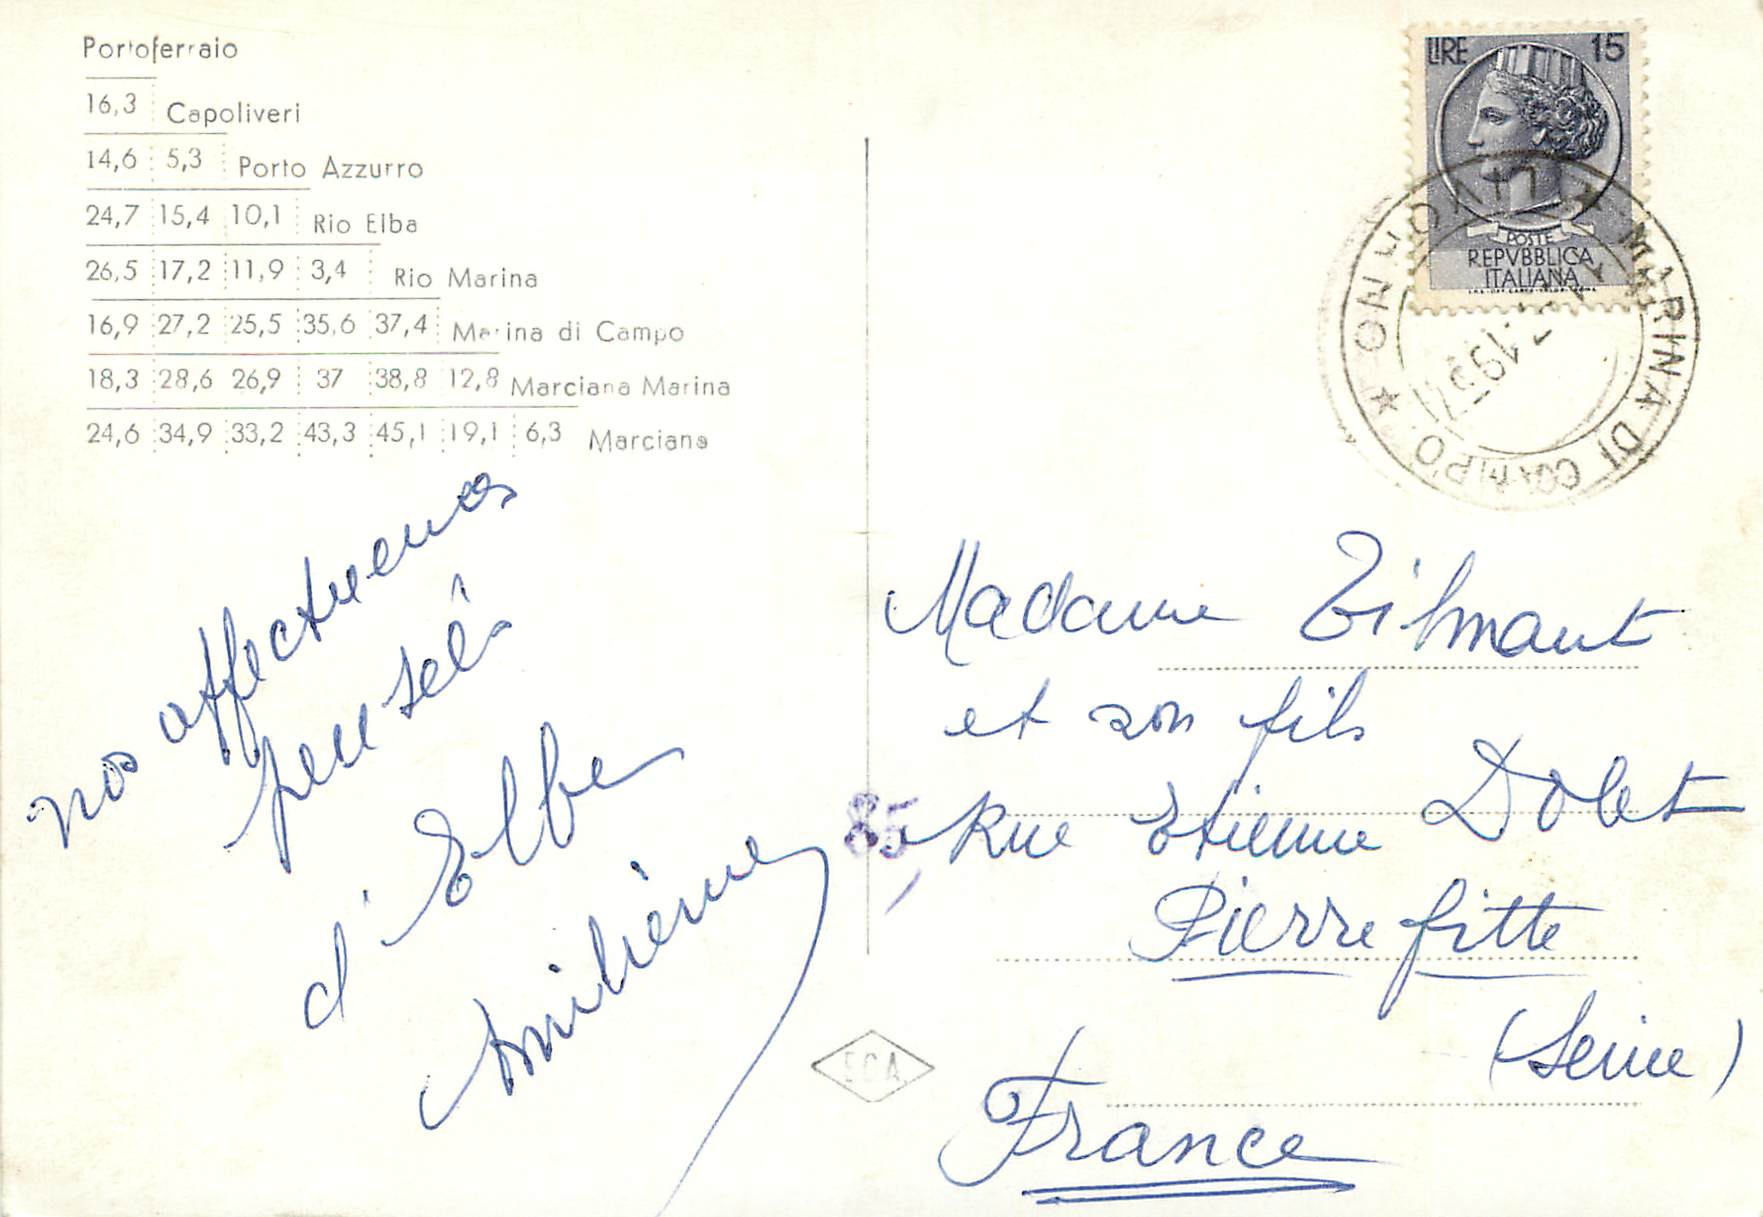 Portoferraio
16,3 Capoliveri
14,6 5,3 Porto Azzurro
24,7 15,4 10,1 Rio Elba
26,5 17,2 11,9 3,4 Rio Marina
16,9 27,2 25,5 35,6 37,4 Marina di Campo
18,3 28,6 26,9 37 38,8 12,8 Marciana Marina
24,6 34,9 33,2 43,3 45,1 19,1 6,3 Marciana
nos affectueuses
pensées
d'Elbe
LIRE 15
POSTE
REPVBBLICA
ITALIANA
MARINA DI CAMPO ★
1957
Madame Tilmant
et son fils
85 Rue Etienne Dolet
Pierrefitte
(Seine)
France
ECA